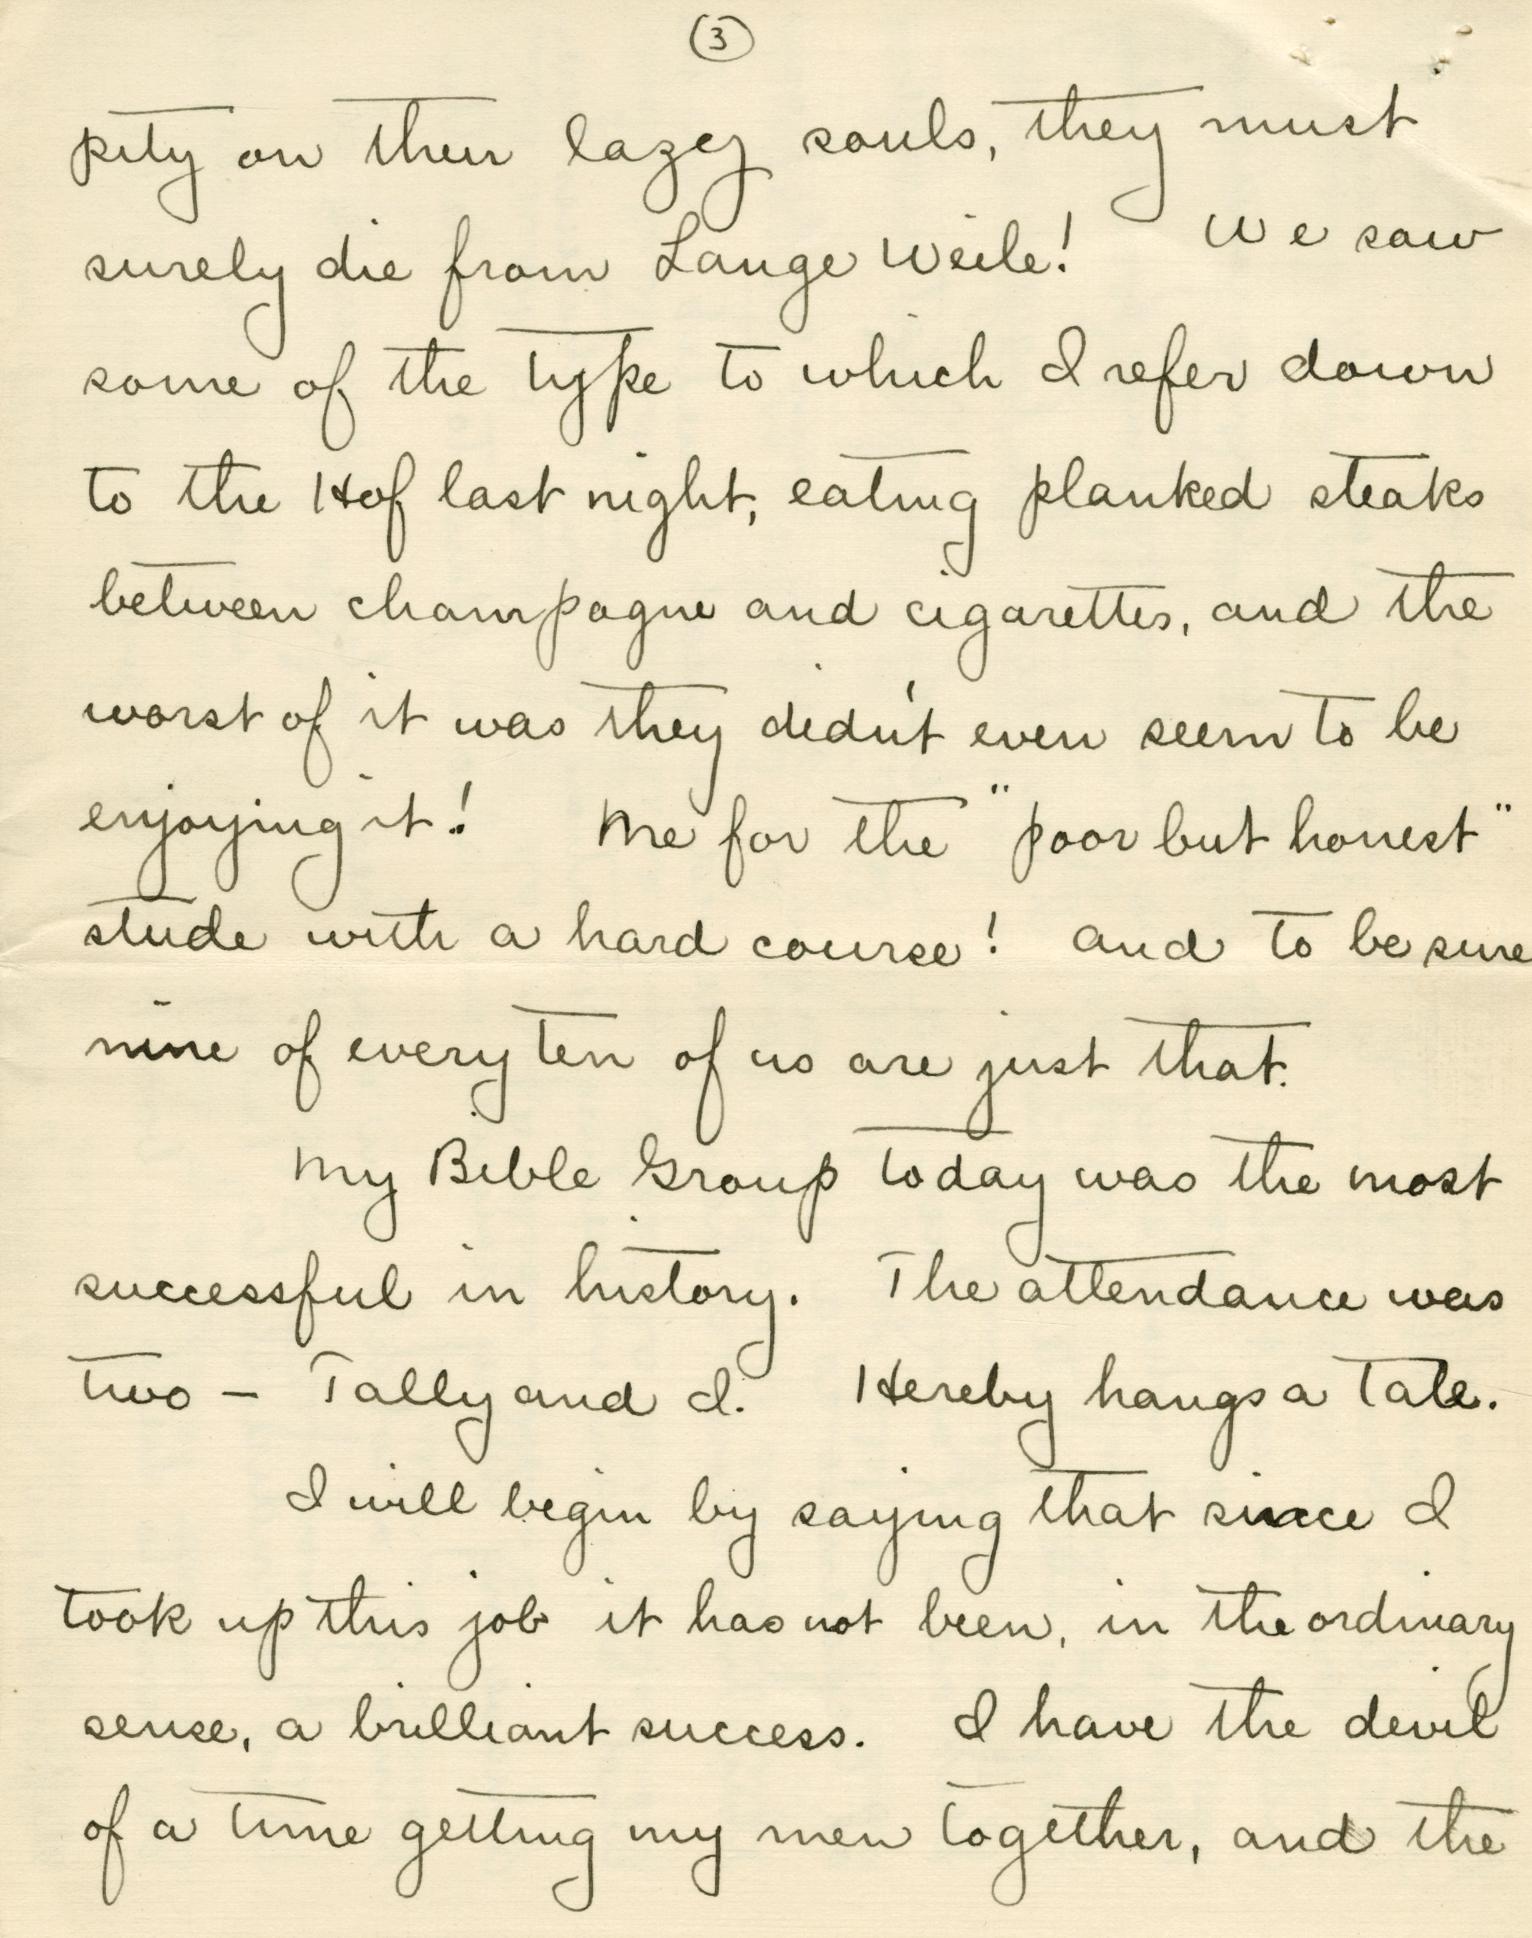 (3)
pity on their lazy souls, they must
surely die from Lange Weile! We saw
some of the type to which I refer down
to the Hof last night, eating planked steaks
between champagne and cigarettes, and the
worst of it was they didn't even seem to be
enjoying it! Me for the "poor but honest"
stude with a hard course! and to be sure
nine of every ten of us are just that.
My Bible Group today was the most
successful in history. The attendance was
two – Tally and I. Hereby hangs a tale.
I will begin by saying that since I
took up this job it has not been, in the ordinary
sense, a brilliant success. I have the devil
of a time getting my men together, and the